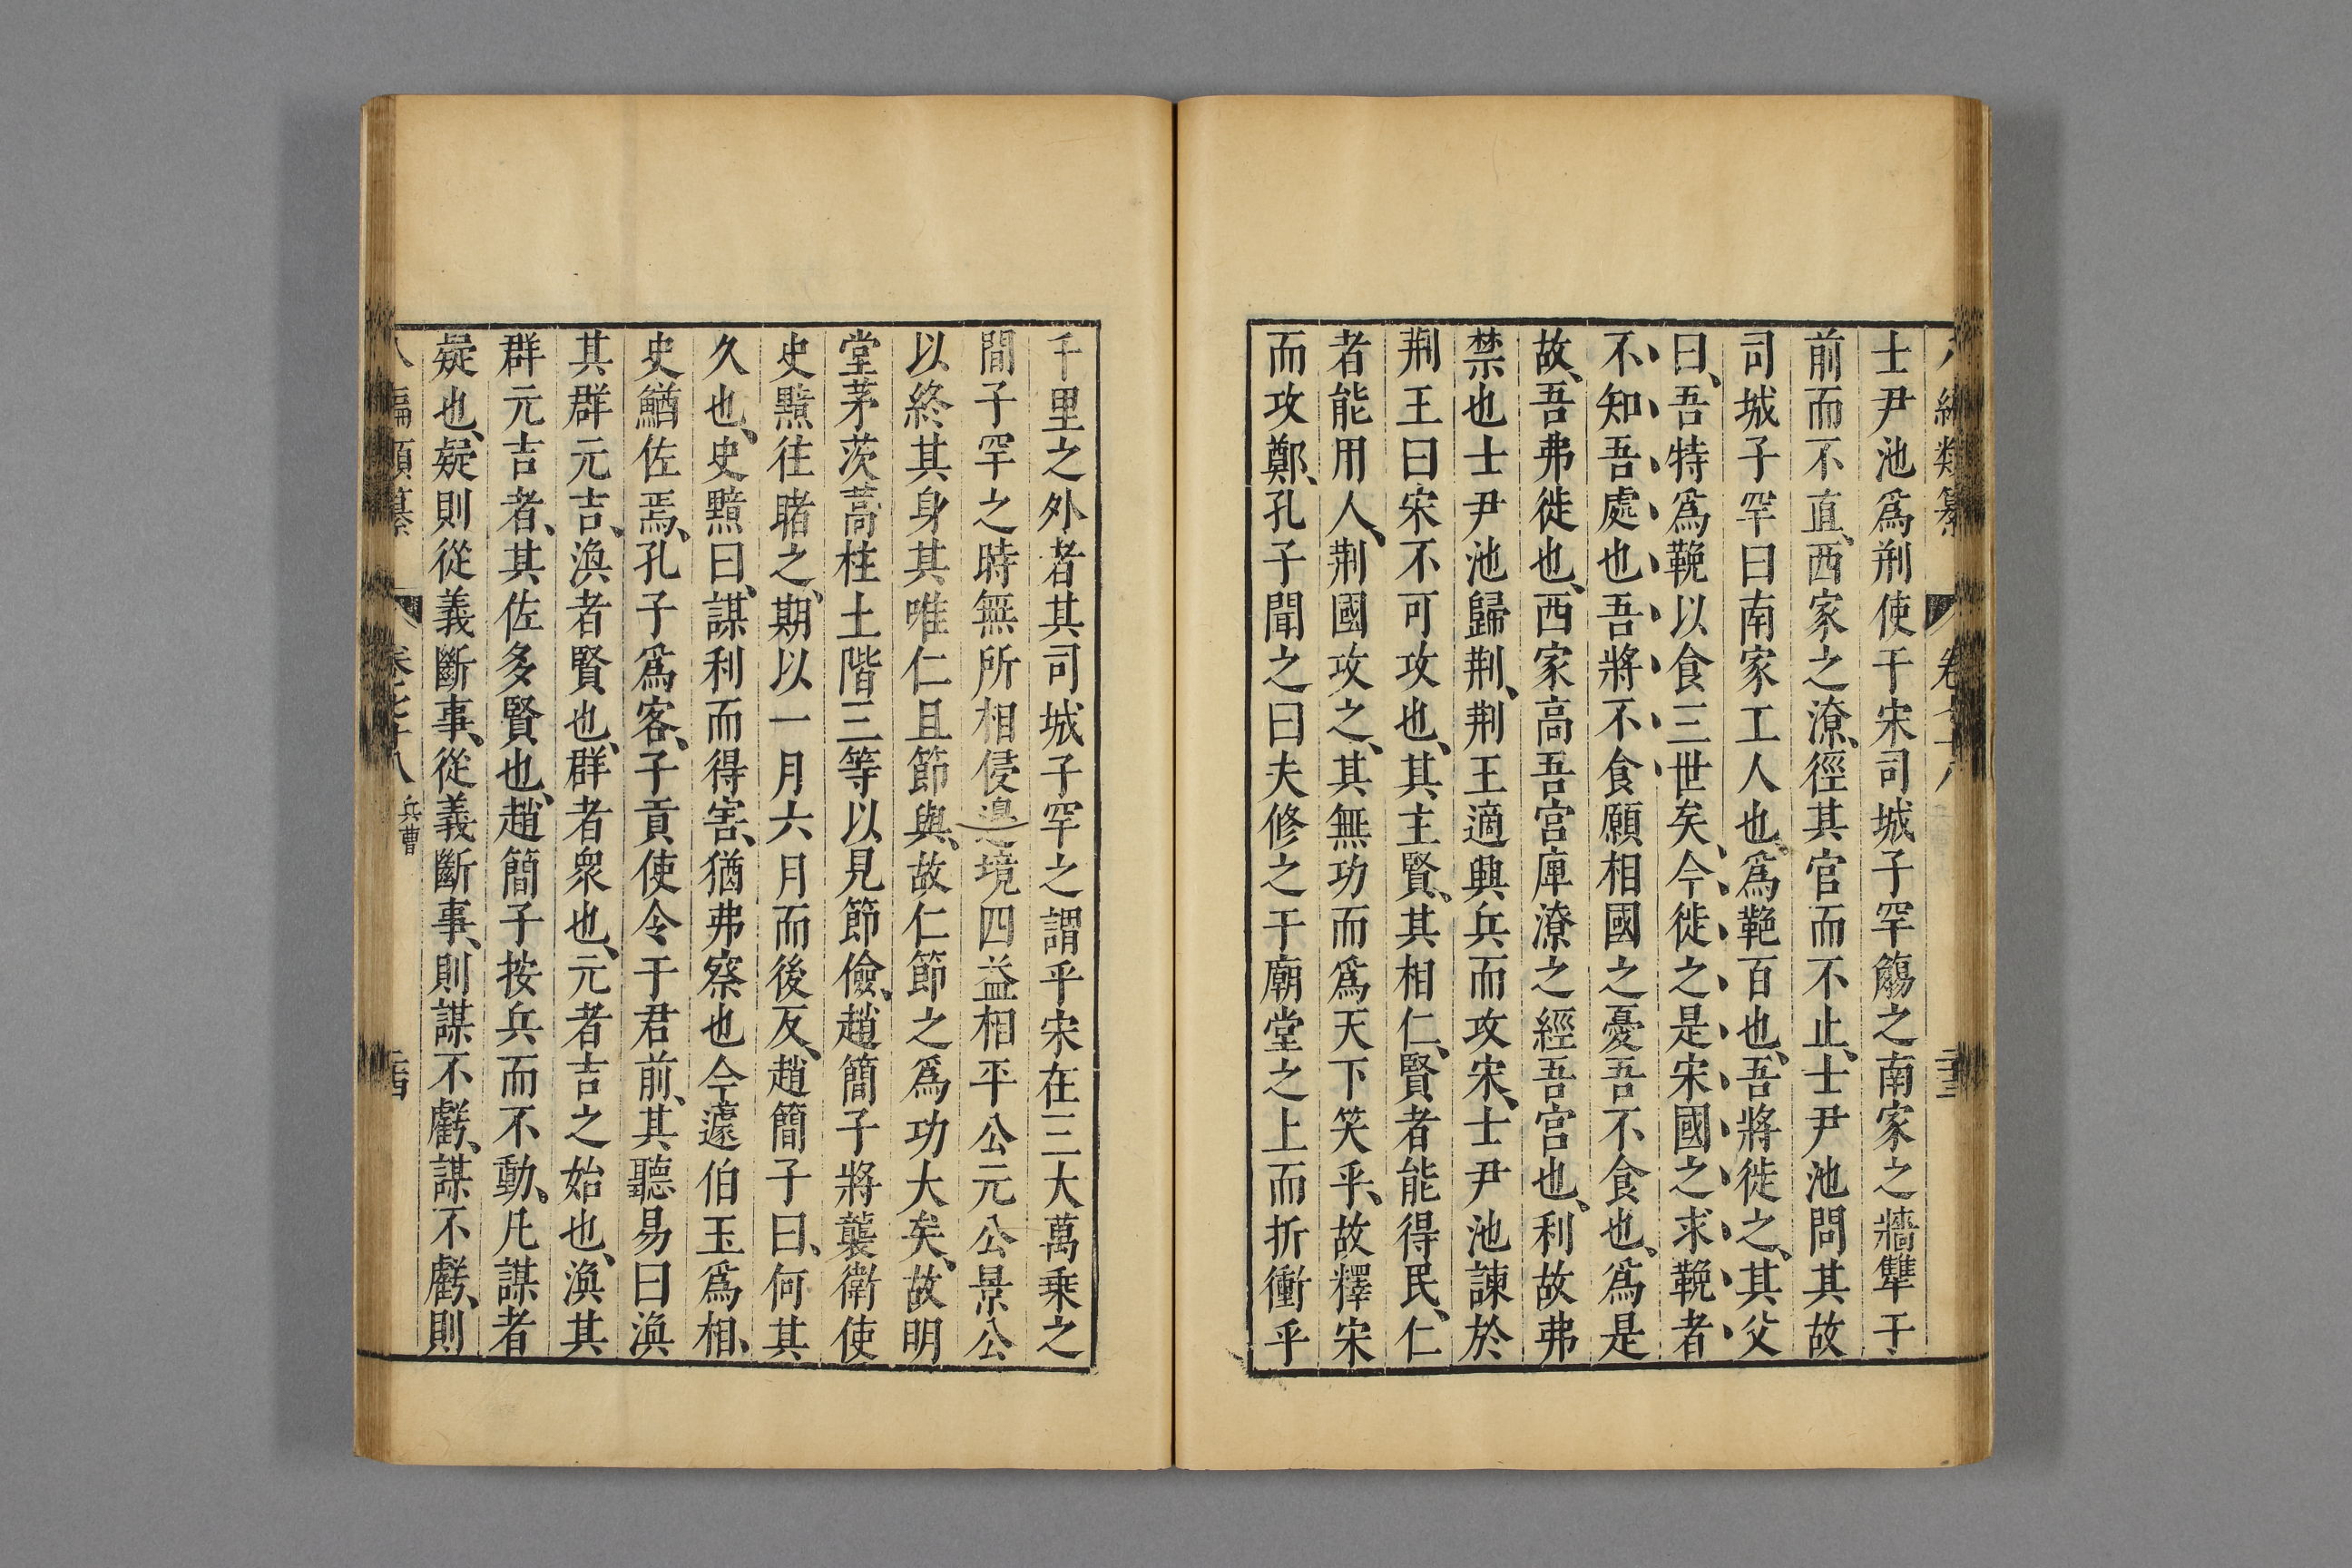 士尹池爲荆使于宋司城子罕觴之南家之牆犨于
前而不直、西家之潦、徑其官而不止、士尹池問其故
司城子罕曰南家工人也、爲鞔百也、吾將徙之、其父
曰、吾特爲鞔以食三世矣、今徙之是宋國之求鞔者
不知吾處也、吾將不食願相國之憂吾不食也、爲是
故、吾弗徙也、西家高吾宫庳潦之經吾宫也、利故弗
禁也士尹池歸荆、荆王適興兵而攻宋、士尹池諫於
荆王曰宋不可攻也、其主賢、其相仁、賢者能得民、仁
者能用人、荆國攻之、其無功而爲天下笑乎、故釋宋
而攻鄭、孔子聞之曰夫修之于廟堂之上而折衝乎
千里之外者其司城子罕之謂乎宋在三大萬乗之
間子罕之時無所相侵邉境四益相平公元公景公
以終其身其唯仁且節與、故仁節之爲功大矣、故明
堂茅茨蒿柱土階三等以見節儉、趙簡子將襲衛使
史黯往睹之、期以一月六月而後反、趙簡子曰、何其
久也、史黯曰、謀利而得害、猶弗察也今蘧伯玉爲相、
史鰌佐焉、孔子爲客、子貢使令于君前、其聽易曰渙
其群元吉、渙者賢也、群者衆也、元者吉之始也、渙其
群元吉者、其佐多賢也、趙簡子按兵而不動、凡謀者
疑也、疑則從義斷事、從義斷事、則謀不虧、謀不虧、則
兵曹